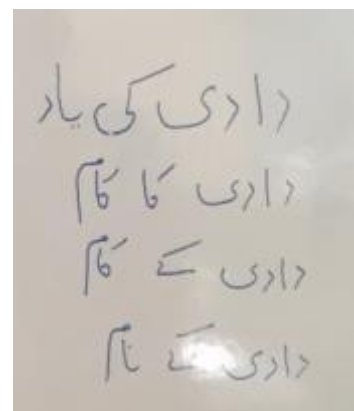 دادی کی یاد
دادی کا کام
دادی کے کام
دادی کے نام